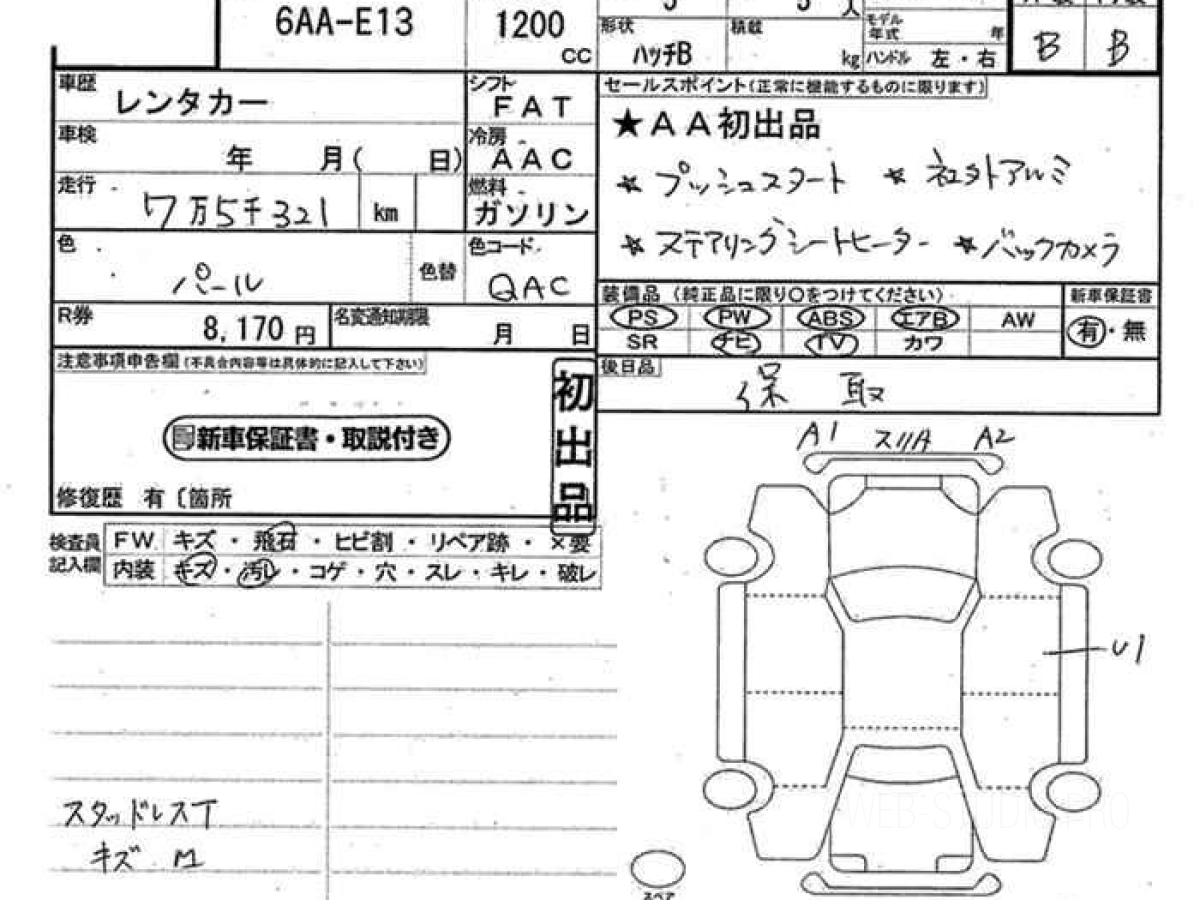 6AA-E13
1200
CC
5
人
形状
ハッチB
積載
kg
モデル年式
年
ハンドル 左・右
B
B
車歴
レンタカー
シフト
FAT
車検
年 月( 日)
冷房
AAC
走行
7万5千321
km
燃料
ガソリン
色
パール
色替
色コード
QAC
R券
8,170 円
名変通知期限
月 日
注意事項申告欄(不具合内容等は具体的に記入して下さい)
新車保証書・取説付き
初出品
修復歴 有〔箇所
セールスポイント(正常に機能するものに限ります)
★AA初出品
☆ プッシュスタート ☆ 社外アルミ
☆ ステアリングシートヒーター ☆ バックカメラ
装備品 (純正品に限り○をつけてください)
PS PW ABS エアB AW
SR ナビ TV カワ
新車保証書
有・無
後日品
保 取
検査員記入欄
FW キズ・飛石・ヒビ割・リペア跡・×要
内装 キズ・汚レ・コゲ・穴・スレ・キレ・破レ
A1 スリA A2
U1
スタッドレスT
キズ M
スペア
WEB-STUDIO.PRO